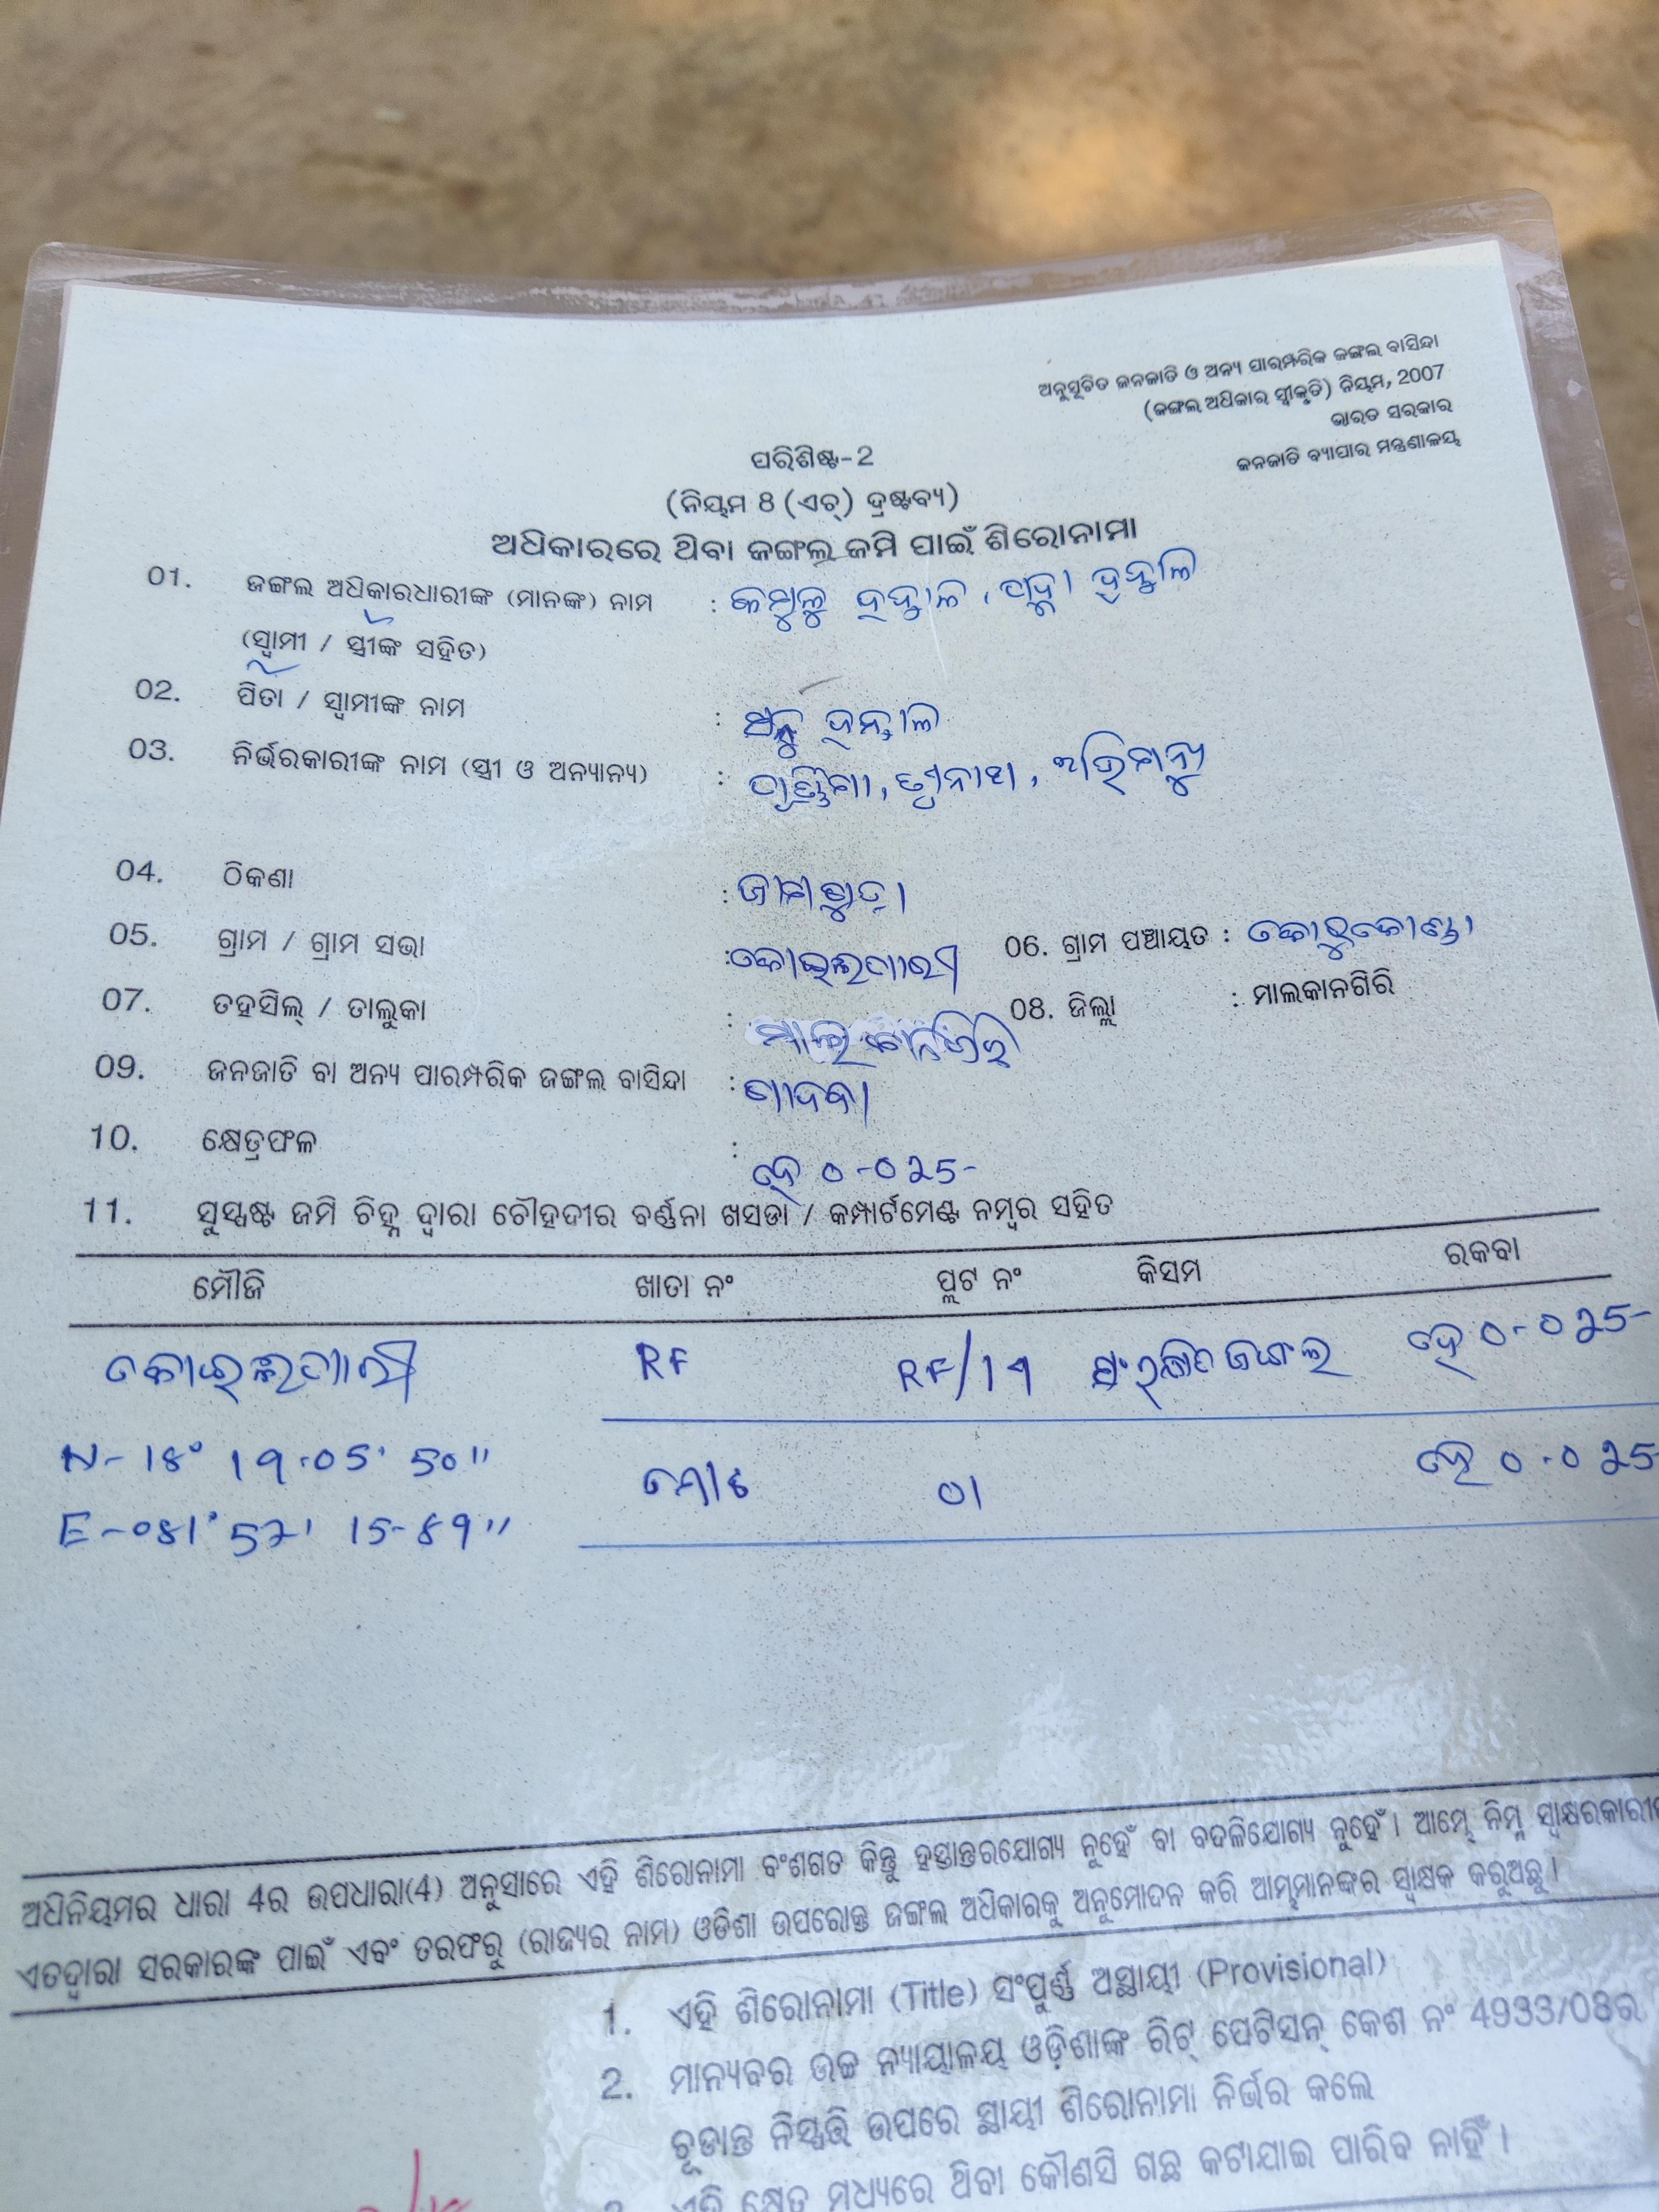 ଅନୁସୂଚିତ ଜନଜାତି ଓ ଅନ୍ୟ ପାରମ୍ପରିକ ଜଙ୍ଗଲ ବାସିନ୍ଦା
(ଜଙ୍ଗଲ ଅଧିକାର ସ୍ୱୀକୃତି) ନିୟମ, 2007
ଭାରତ ସରକାର
ଜନଜାତି ବ୍ୟାପାର ମନ୍ତ୍ରଣାଳୟ
ପରିଶିଷ୍ଟ-2
(ନିୟମ 8 (ଏଚ୍) ଦ୍ରଷ୍ଟବ୍ୟ)
ଅଧିକାରରେ ଥିବା ଜଙ୍ଗଲ ଜମି ପାଇଁ ଶିରୋନାମା
01. ଜଙ୍ଗଲ ଅଧିକାରଧାରୀଙ୍କ (ମାନଙ୍କ) ନାମ :
(ସ୍ୱାମୀ / ସ୍ତ୍ରୀଙ୍କ ସହିତ)
02. ପିତା / ସ୍ୱାମୀଙ୍କ ନାମ :
03. ନିର୍ଭରକାରୀଙ୍କ ନାମ (ସ୍ତ୍ରୀ ଓ ଅନ୍ୟାନ୍ୟ) : ଅଭିମନ୍ୟୁ
04. ଠିକଣା :
05. ଗ୍ରାମ / ଗ୍ରାମ ସଭା : 06. ଗ୍ରାମ ପଞ୍ଚାୟତ : କୋରୁକୋଣ୍ଡା
07. ତହସିଲ୍ / ତାଲୁକା : ମାଲକାନଗିରି 08. ଜିଲ୍ଲା : ମାଲକାନଗିରି
09. ଜନଜାତି ବା ଅନ୍ୟ ପାରମ୍ପରିକ ଜଙ୍ଗଲ ବାସିନ୍ଦା : ଗାଦବା
10. କ୍ଷେତ୍ରଫଳ : ହେ 0-025-
11. ସୁସ୍ପଷ୍ଟ ଜମି ଚିହ୍ନ ଦ୍ୱାରା ଚୌହଦୀର ବର୍ଣ୍ଣନା ଖସଡା / କମ୍ପାର୍ଟମେଣ୍ଟ ନମ୍ବର ସହିତ
ମୌଜି ଖାତା ନଂ ପ୍ଲଟ ନଂ କିସମ ରକବା
RF RF/19 ସଂରକ୍ଷିତ ଜଙ୍ଗଲ ହେ 0-025-
N-18° 19.05' 50"
ମୋଟ 01 ହେ 0.025
E-081° 57' 15-89"
ଅଧିନିୟମର ଧାରା 4ର ଉପଧାରା(4) ଅନୁସାରେ ଏହି ଶିରୋନାମା ବଂଶଗତ କିନ୍ତୁ ହସ୍ତାନ୍ତରଯୋଗ୍ୟ ନୁହେଁ ବା ବଦଳିଯୋଗ୍ୟ ନୁହେଁ । ଆମ୍ଭେ ନିମ୍ନ
ଏତଦ୍ୱାରା ସରକାରଙ୍କ ପାଇଁ ଏବଂ ତରଫରୁ (ରାଜ୍ୟର ନାମ) ଓଡିଶା ଉପରୋକ୍ତ ଜଙ୍ଗଲ ଅଧିକାରକୁ ଅନୁମୋଦନ କରି ଆମ୍ଭମାନଙ୍କର ସ୍ୱାକ୍ଷକ କରୁଅଛୁ ।
1. ଏହି ଶିରୋନାମା (Title) ସଂପୁର୍ଣ୍ଣ ଅସ୍ଥାୟୀ (Provisional)
2. ମାନ୍ୟବର ଉଚ୍ଚ ନ୍ୟାୟାଳୟ ଓଡ଼ିଶାଙ୍କ ରିଟ୍ ପେଟିସନ୍ କେଶ ନଂ 4933/08ର
ଚୂଡାନ୍ତ ନିସ୍ପତ୍ତି ଉପରେ ସ୍ଥାୟୀ ଶିରୋନାମା ନିର୍ଭର କଲେ
ଏହି କ୍ଷେତ୍ର ମଧ୍ୟରେ ଥିବା କୌଣସି ଗଛ କଟାଯାଇ ପାରିବ ନାହିଁ ।